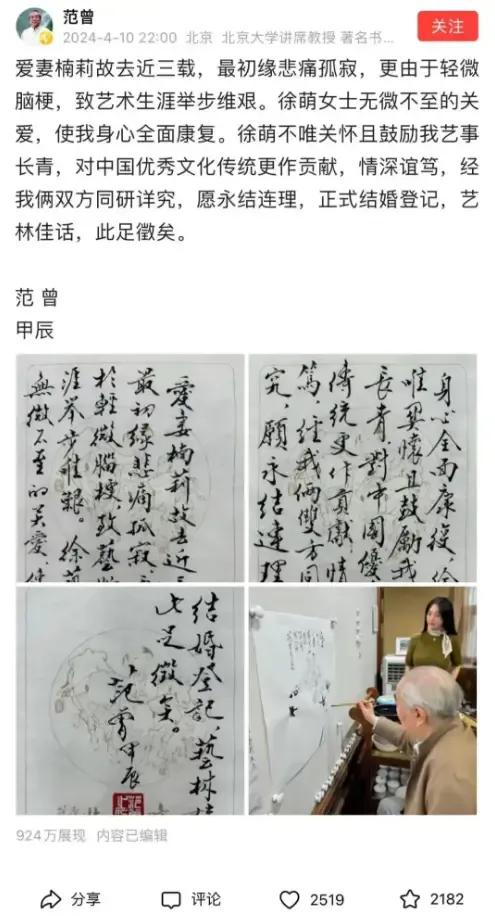 范曾
2024-4-10 22:00 北京 北京大学讲席教授 著名书...
关注
爱妻楠莉故去近三载，最初缘悲痛孤寂，更由于轻微
脑梗，致艺术生涯举步维艰。徐萌女士无微不至的关
爱，使我身心全面康复。徐萌不唯关怀且鼓励我艺事
长青，对中国优秀文化传统更作贡献，情深谊笃，经
我俩双方同研详究，愿永结连理，正式结婚登记，艺
林佳话，此足徵矣。
范 曾
甲辰
愛妻楠莉故去近三
最初缘悲痛孤寂
於輕微腦梗，致藝
涯举步维艱。徐萌
無微不至的关爱，使
身心全面康復，徐
唯関懷且鼓勵我
長青，對中國優
傳統更作貢獻，情
篤，經我俩雙方同
究，願永结連理
结婚登记，藝林
此足徵矣。
范曾甲辰
924万展现 内容已编辑
分享
评论
2519
2182